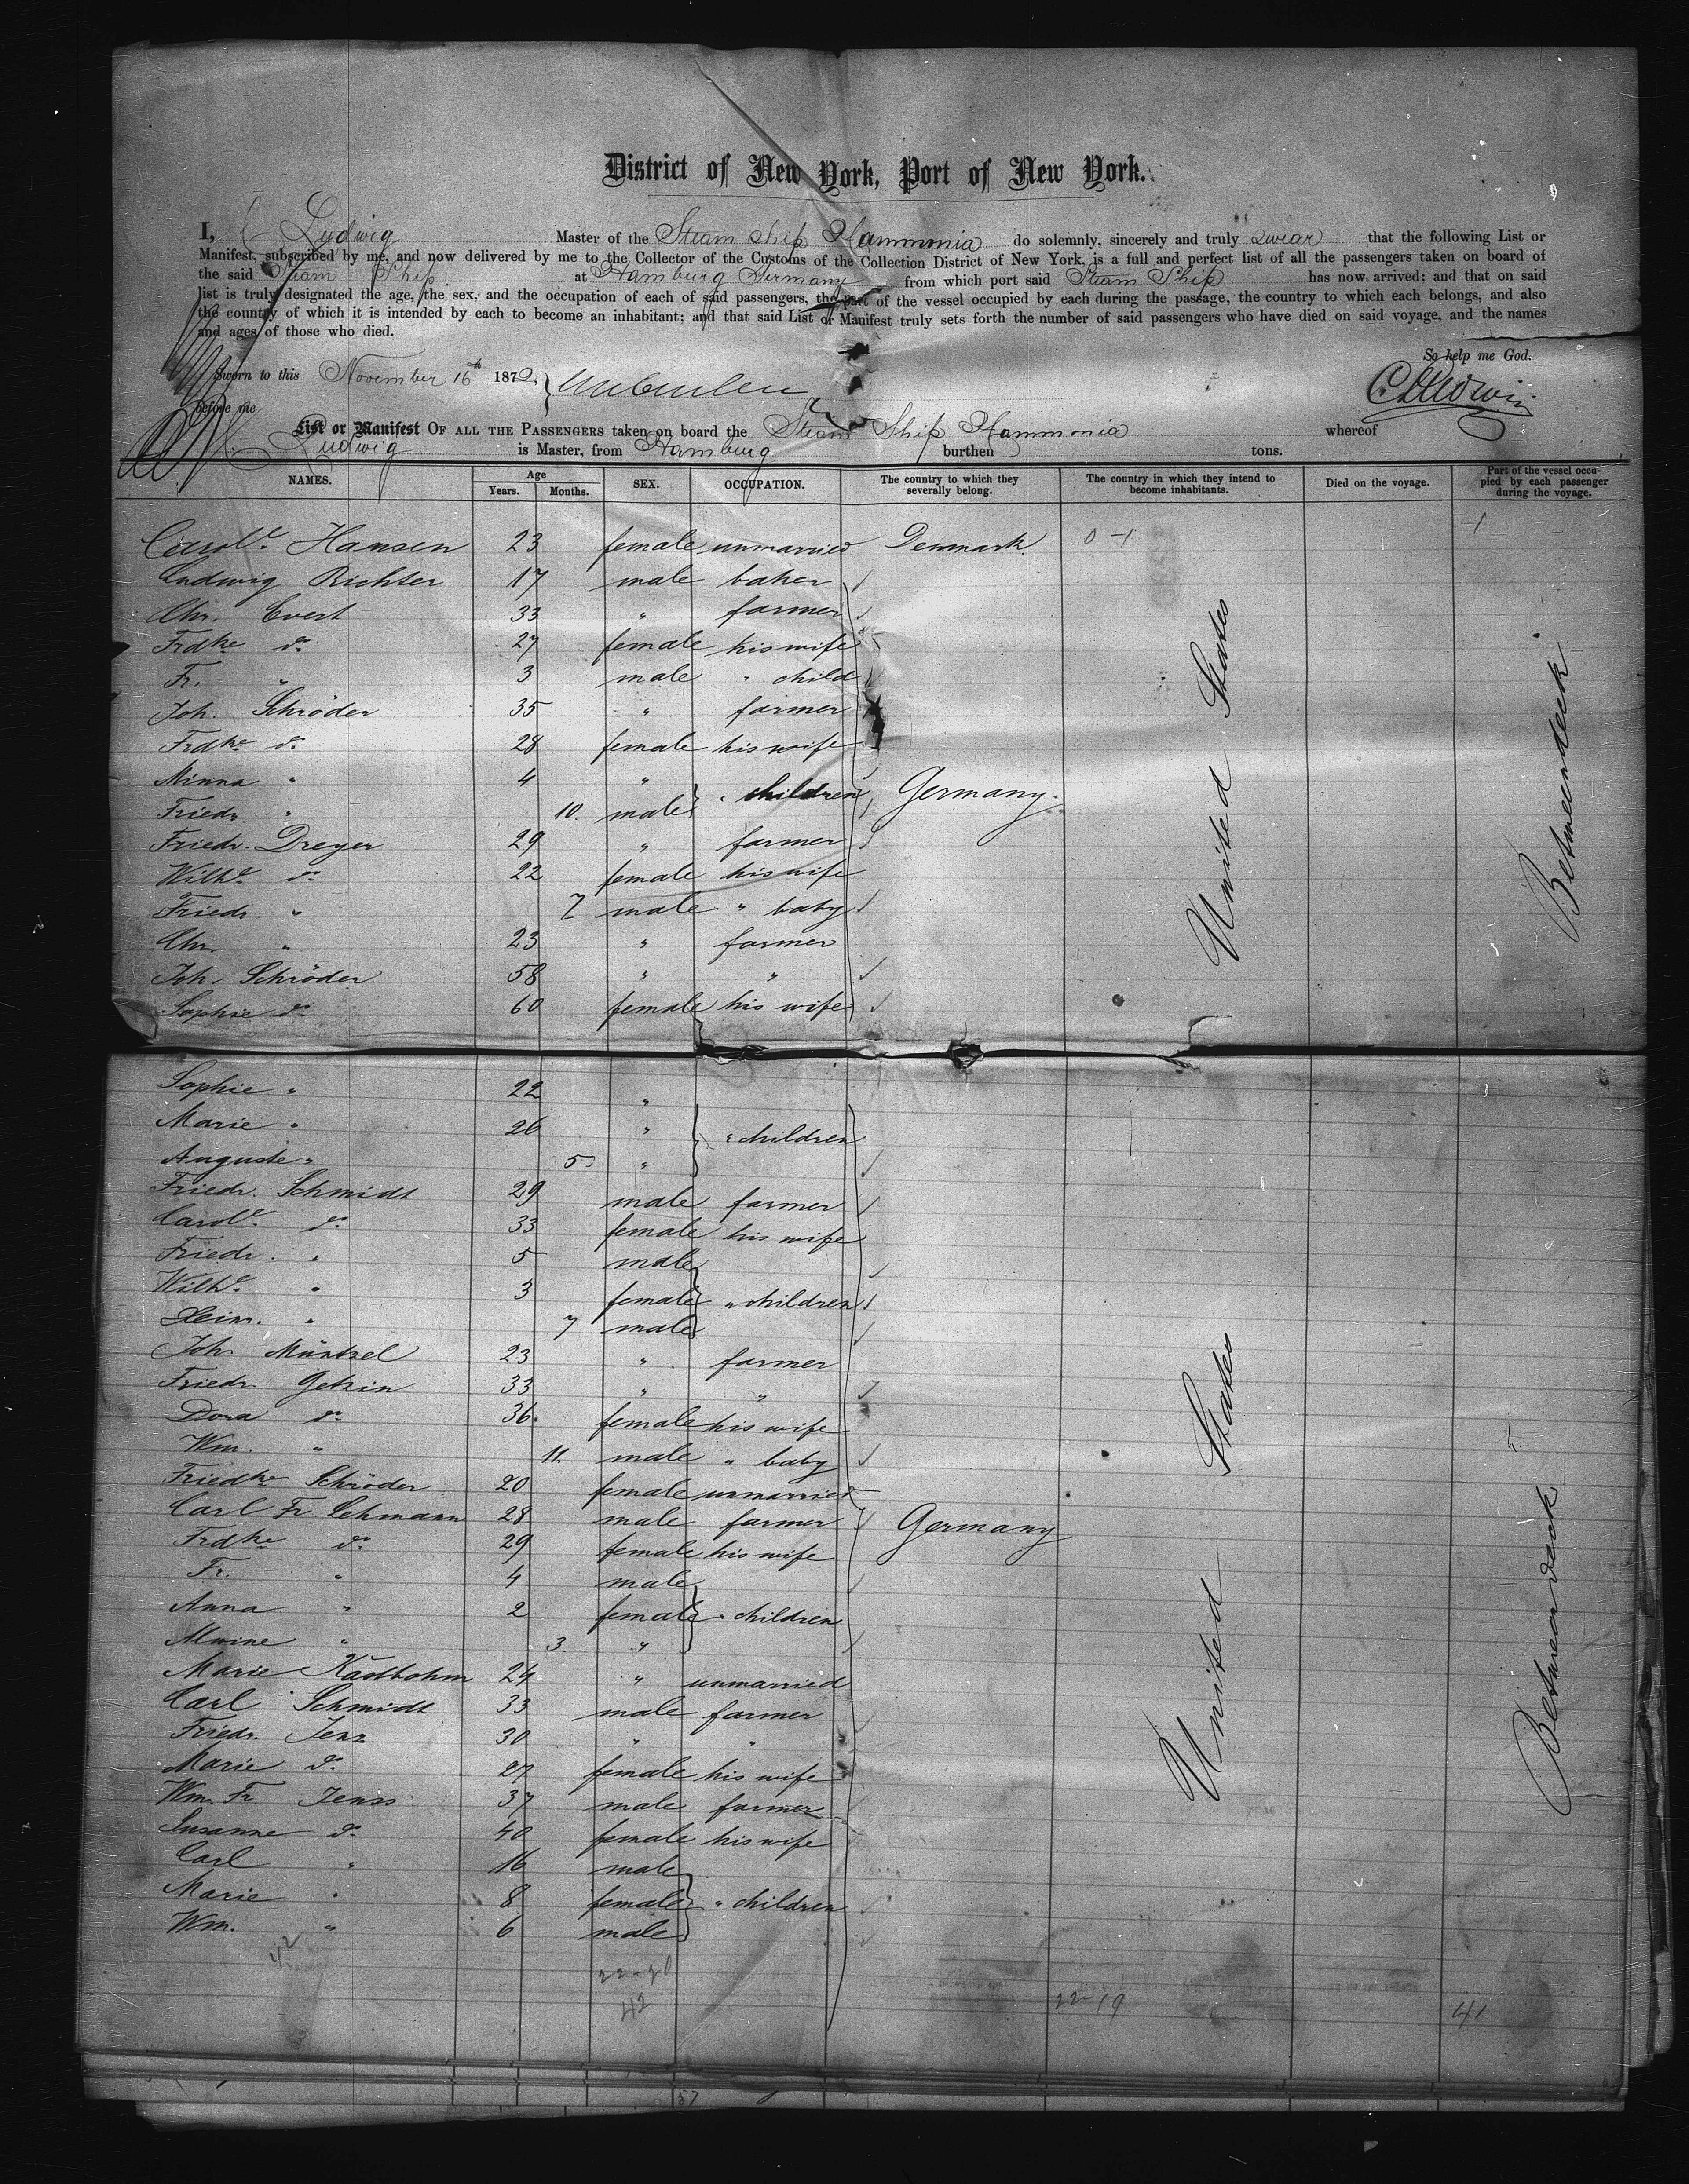 District of New York, Port of New York.
I, C Ludwig Master of the Steam Ship Hammonia do solemnly, sincerely and truly swear that the following List or
Manifest, subscribed by me, and now delivered by me to the Collector of the Customs of the Collection District of New York, is a full and perfect list of all the passengers taken on board of
the said Steam Ship at Hamburg Germany from which port said Steam Ship has now arrived; and that on said
list is truly designated the age, the sex, and the occupation of each of said passengers, the part of the vessel occupied by each during the passage, the country to which each belongs, and also
the country of which it is intended by each to become an inhabitant; and that said List or Manifest truly sets forth the number of said passengers who have died on said voyage, and the names
and ages of those who died.
So help me God.
Sworn to this November 16th 1872
before me
List or Manifest OF ALL THE PASSENGERS taken on board the Steam Ship Hammonia whereof
Ludwig is Master, from Hamburg burthen tons.
NAMES. Age Years. Months. SEX. OCCUPATION. The country to which they severally belong. The country in which they intend to become inhabitants. Died on the voyage. Part of the vessel occupied by each passenger during the voyage.
Carole. Hansen 23 female unmarried Denmark 0-1 -1
Ludwig Richter 17 male baker
Chr. Evert 33 " farmer
Frdke do 27 female his wife
Fr. " 3 male " child
Joh. Schröder 35 " farmer
Frdke do 28 female his wife
Minna " 4 "
Friedr. " 10. male " children Germany.
Friedr. Dreyer 29 " farmer
Wilhe do 22 female his wife
Friedr. " 7 male " baby
Chr. " 23 " farmer
Joh. Schröder 58 " "
Sophie do 60 female his wife
United States
Betweendeck
Sophie " 22 "
Marie " 26 " " children
Auguste " 5 "
Friedr. Schmidt 29 male farmer
Carole. do 33 female his wife
Friedr. " 5 male
Wilhe " 3 female " children
Heinr. " 7 male
Joh. Müntzel 23 " farmer
Friedr. Getzin 33 " "
Dora do 36. female his wife
Wm. " 11. male " baby
Friedke Schröder 20 female unmarried
Carl Fr. Lehmann 28 male farmer Germany
Frdke do 29 female his wife
Fr. " 4 male
Anna " 2 female " children
Alwine " 3. "
Marie Kastbohm 24 " unmarried
Carl Schmidt 33 male farmer
Friedr. Jens 30 " "
Marie do 27 female his wife
Wm. Fr. Jenss 37 male farmer
Susanne do 40 female his wife
Carl " 16 male
Marie " 8 female " children
Wm. " 6 male
United States
Betweendeck
42 22-20
42 22-19 41
57